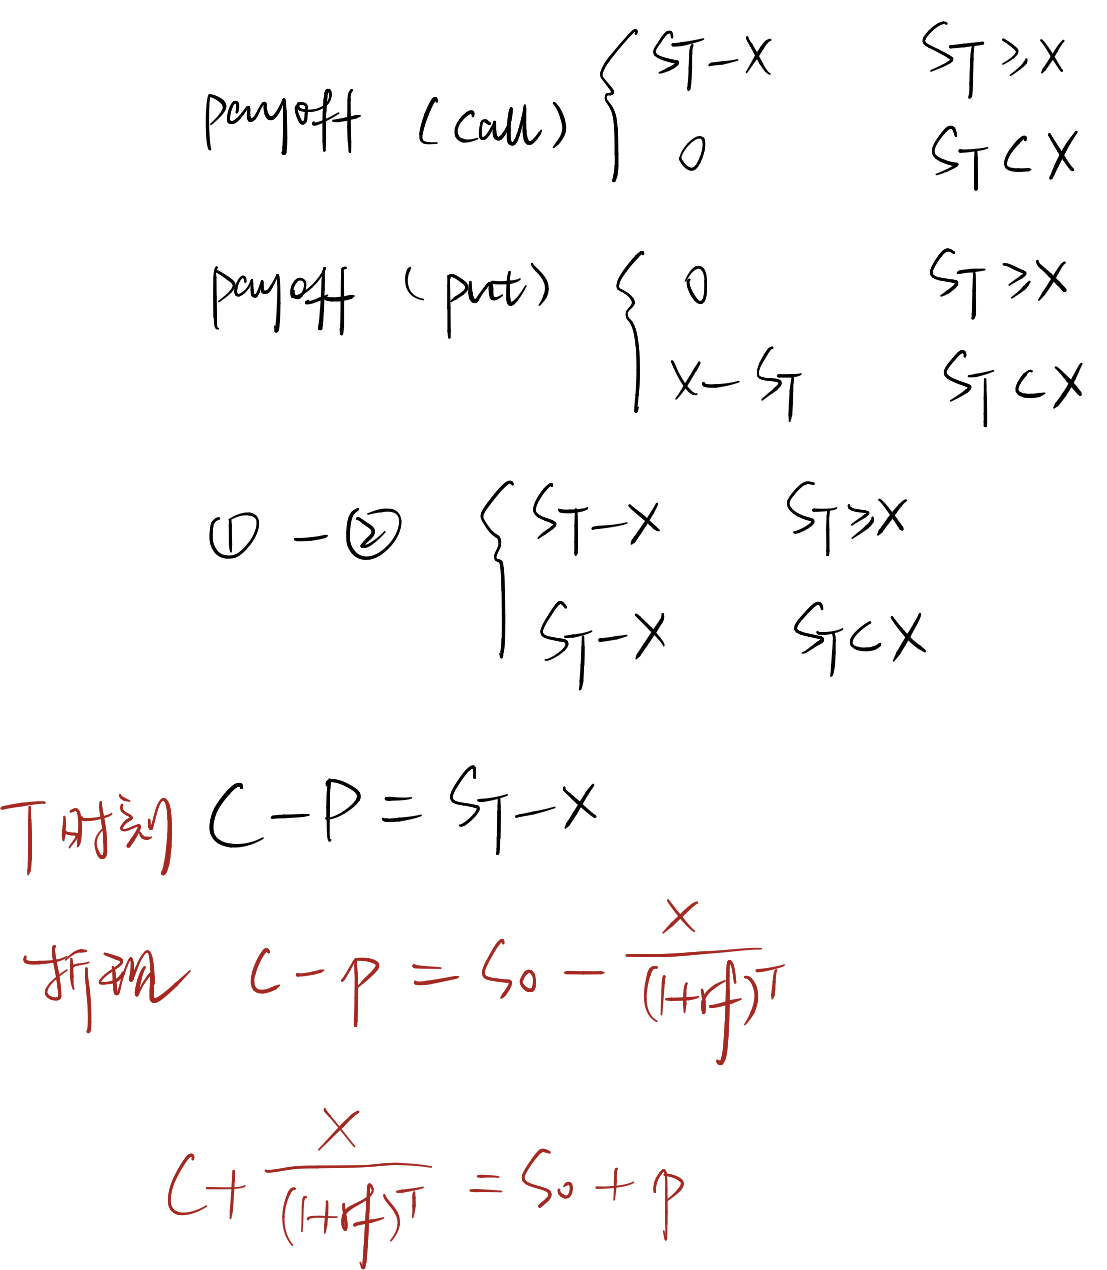 payoff (call) { ST-X ST≥X
0 ST<X
payoff (put) { 0 ST≥X
X-ST ST<X
①-② { ST-X ST≥X
ST-X ST<X
T时刻 C-P=ST-X
折现 C-P=S0-X/(1+rf)^T
C+X/(1+rf)^T=S0+P